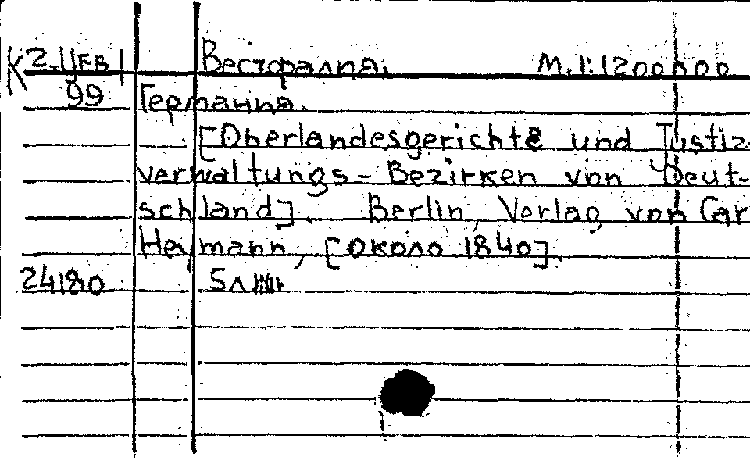 К 2-ЦЕВ Вестфалия. М.1:1200000
99 Германия.
[Oberlandesgerichte und Justiz-
verwaltungs-Bezirken von Deut-
schland]. Berlin, Verlag von Car
Heymann, [около 1840].
24180 5л